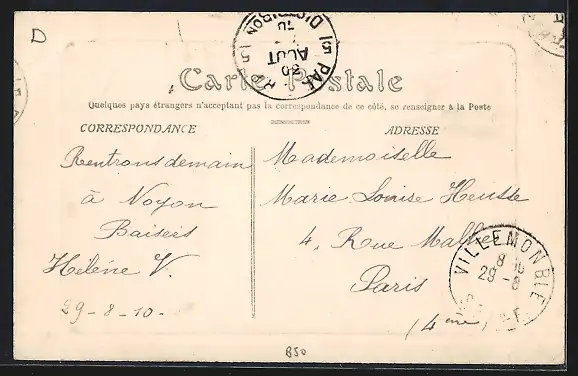 D
PARIS DISTRIBON
5 5
7U
30
AOUT
Carte Postale
Quelques pays étrangers n'acceptant pas la correspondance de ce côté, se renseigner à la Poste
CORRESPONDANCE
Rentrons demain
à Noyon
Baisers
Hélène V.
29-8-10-
ADRESSE
Mademoiselle
Marie Louise Heusse
4, Rue Malher
Paris
(4eme)
VILLEMONBLE
8
29 -8
B50